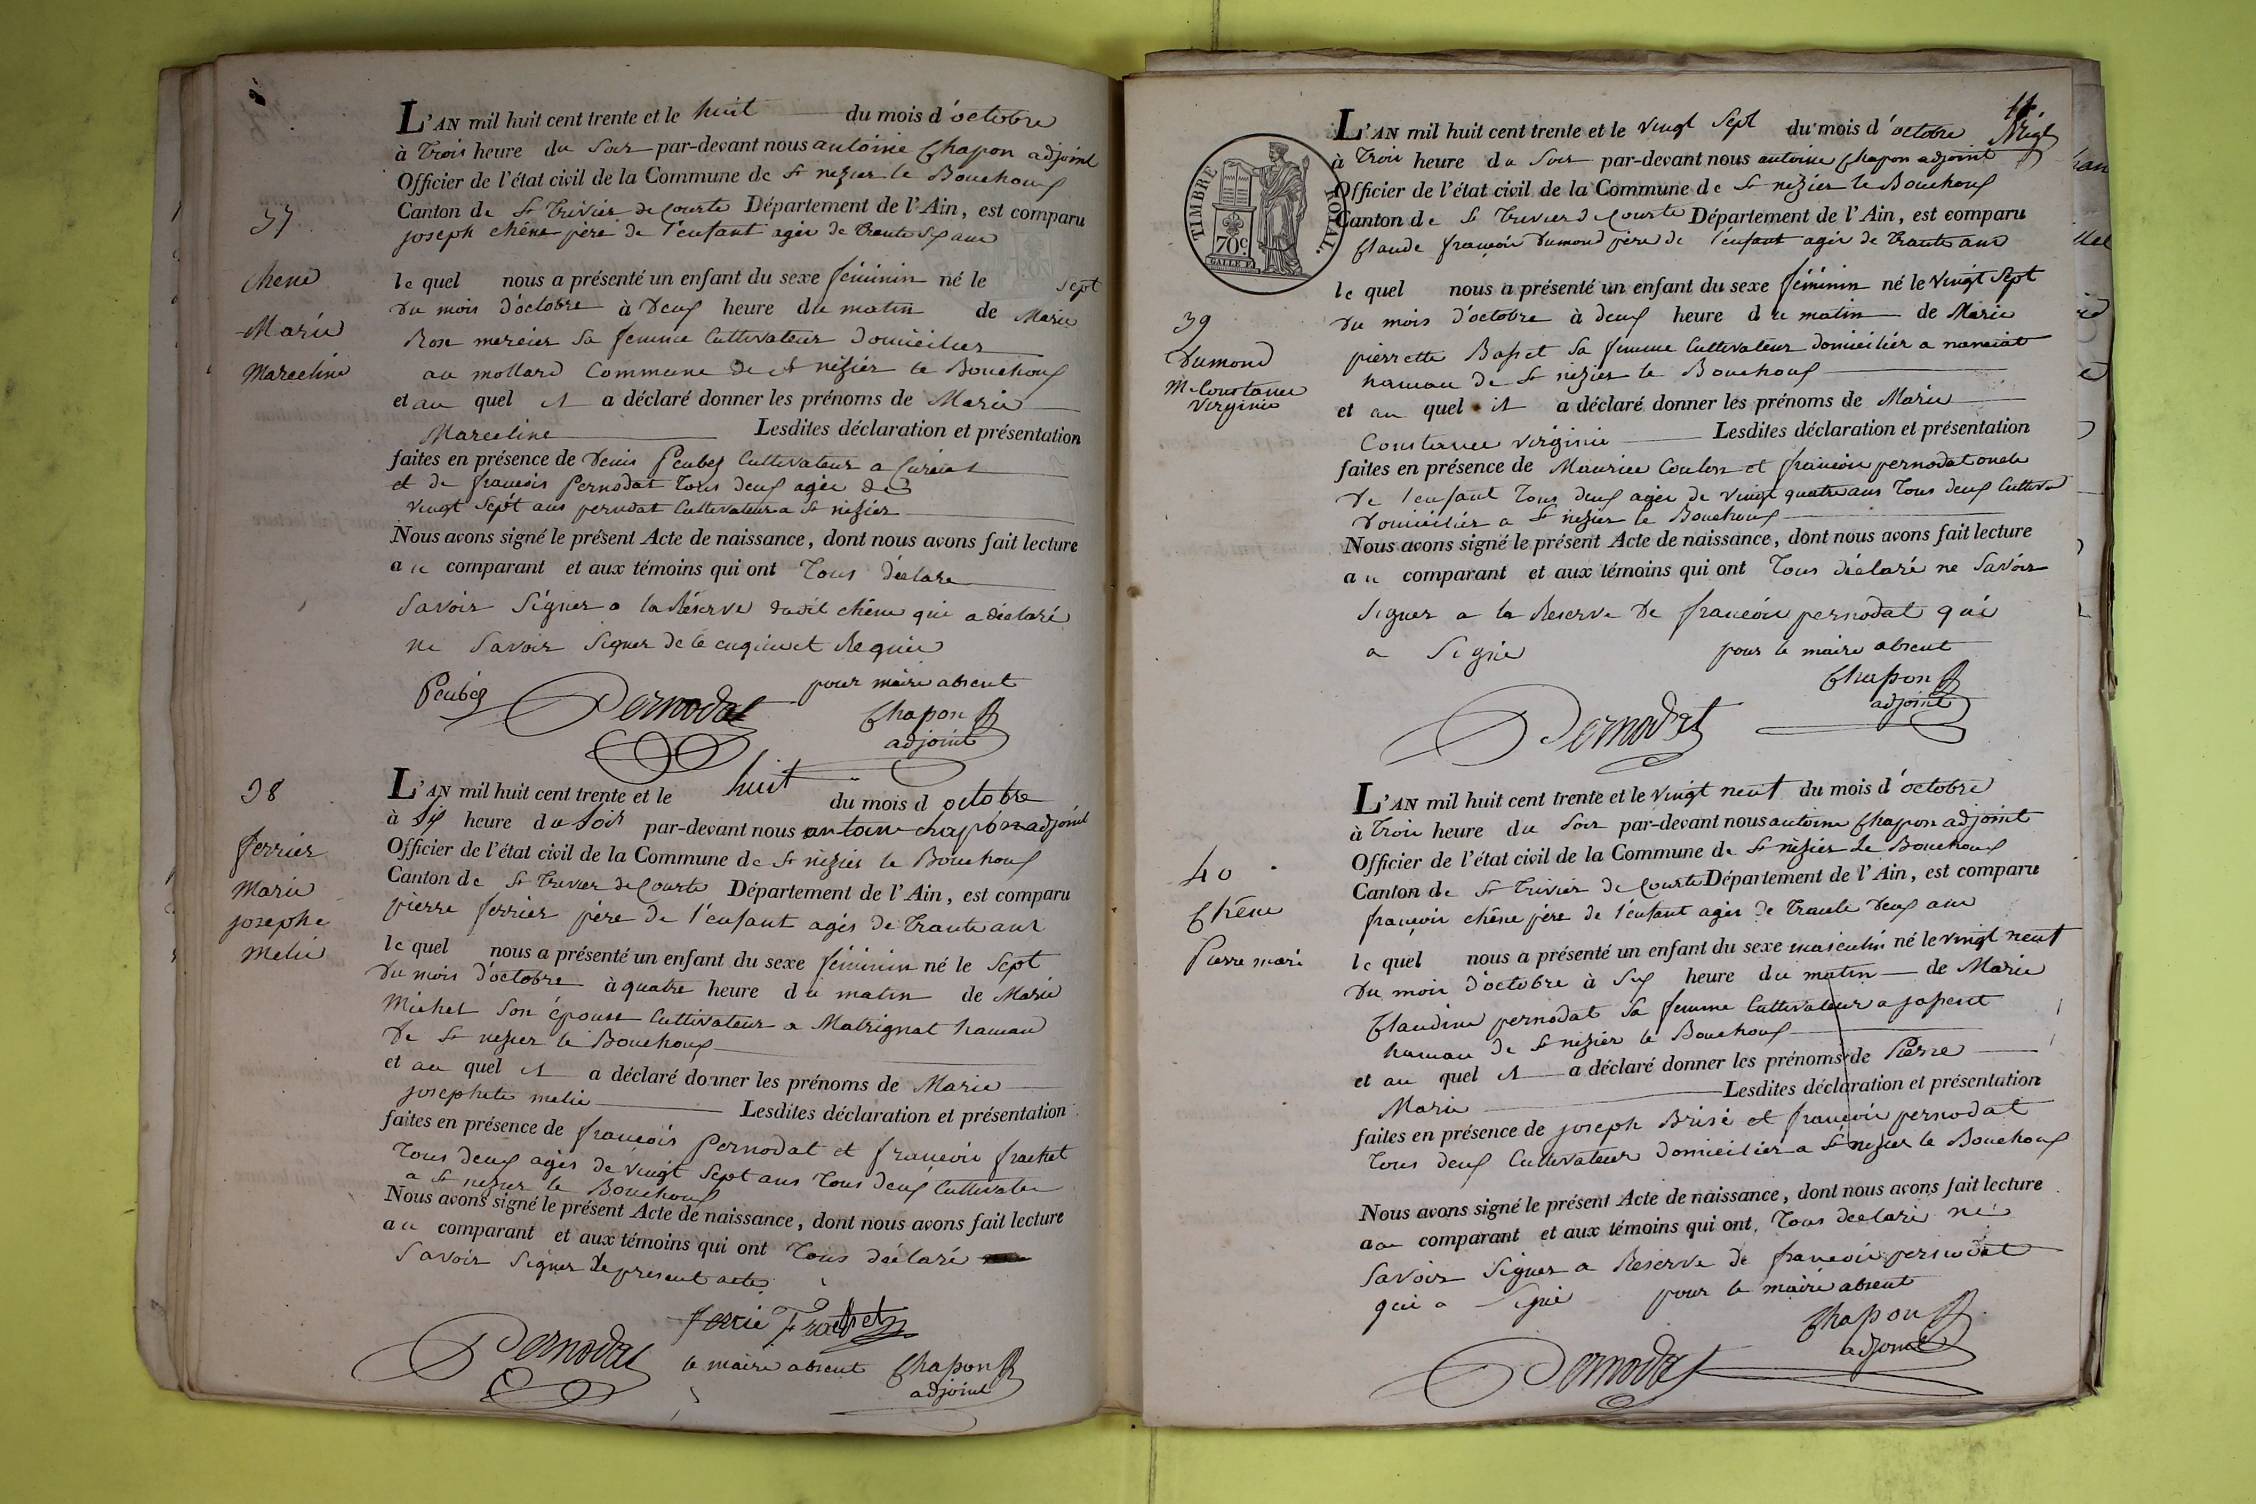 37
chene
Marie
Marceline
L'AN mil huit cent trente et le huit du mois d'octobre
à Trois heure du Soir par-devant nous antoine Chapon adjoint
Officier de l'état civil de la Commune de St nizier le Bouchoux
Canton de St Trivier de Courte Département de l'Ain, est comparu
joseph chêne père de l'enfant agér de Trante Six ans
le quel nous a présenté un enfant du sexe féminin né le Sept
Du mois d'octobre à Deux heure du matin de Marie
Rose mercier Sa femme Cultivateur Domicilier
au mollard Commune de St nizier le Bouchoux
et au quel il a déclaré donner les prénoms de Marie
Marceline Lesdites déclaration et présentation
faites en présence de Denis Peubez Cultivateur a Curciat
et de francois Pernodat Tous deux agér de
vingt Sept ans pernodat Cultivateur a St nizier
Nous avons signé le présent Acte de naissance, dont nous avons fait lecture
au comparant et aux témoins qui ont Tous déclare
Savoir Signer a la Réserve dudit chêne qui a déclaré
ne Savoir Signer de ce enquit et Requie
Peubez Pernodat
pour maire absent
Chapon
adjoint
38
ferrier
Marie
josephe
Melie
L'AN mil huit cent trente et le huit du mois d octobre
à Six heure du Soir par-devant nous antoine chapon adjoint
Officier de l'état civil de la Commune de St nizier le Bouchoux
Canton de St Trivier de Courte Département de l'Ain, est comparu
pierre ferrier père de l'enfant agés de Trante ans
le quel nous a présenté un enfant du sexe féminin né le Sept
Du mois d'octobre à quatre heure du matin de Marie
Michel Son épouse Cultivateur a Matrignat hamau
De St nizier le Bouchoux
et au quel il a déclaré donner les prénoms de Marie
josephete melie Lesdites déclaration et présentation
faites en présence de francois Pernodat et francoir frachet
Tous deux agés de vingt Sept ans Tous deux Cultivater
a St nizier le Bouchoux
Nous avons signé le présent Acte de naissance, dont nous avons fait lecture
au comparant et aux témoins qui ont Tous déclaré
Savoir Signer le present acte
Pernodat ferrie Frachet
le maire absent Chapon
adjoint
TIMBRE ROYAL
70c
GALLE F.
39
Dumond
M. Constance
Virginie
L'AN mil huit cent trente et le vingt Sept du mois d'octobre
à Troir heure du Soir par-devant nous antoine Chapon adjoint
Officier de l'état civil de la Commune de St nizier le Bouchoux
Canton de St Trivier de Courte Département de l'Ain, est comparu
Claude francoir Dumond père de l'enfant agér de Trante ans
le quel nous a présenté un enfant du sexe féminin né le vingt Sept
Du mois d'octobre à deux heure du matin de Marie
pierrette Basset Sa femme Cultivateur domicilier a nanciat
hamau de St nizier le Bouchoux
et au quel il a déclaré donner les prénoms de Marie
Constance virginie Lesdites déclaration et présentation
faites en présence de Maurice Coulon et francoir pernodat oncle
De l'enfant Tous deux agér de vingt quatre ans Tous deux Cultivat
Domicilier a St nizier le Bouchoux
Nous avons signé le présent Acte de naissance, dont nous avons fait lecture
au comparant et aux témoins qui ont Tous déclaré ne Savoir
Signer a la Reserve de francoir pernodat qui
a Signé pour le maire absent
Chapon
adjoint
Pernodat
40
Chêne
Pierre mari
L'AN mil huit cent trente et le vingt neuf du mois d'octobre
à Troir heure du Soir par-devant nous antoine Chapon adjoint
Officier de l'état civil de la Commune de St nizier Le Bouchoux
Canton de St Trivier de Courte Département de l'Ain, est comparu
francoir chêne père de l'enfant agér de Trante Deux ans
le quel nous a présenté un enfant du sexe masculin né le vingt neuf
Du moir d'octobre à Six heure du matin de Marie
Claudine pernodat Sa femme Cultivateur a
hamau de St nizier le Bouchoux
et au quel il a déclaré donner les prénoms de Pierre
Marie Lesdites déclaration et présentation
faites en présence de joseph Brisé et francoir pernodat
Tous deux Cultivateur Domicilier a St nizier le Bouchoux
Nous avons signé le présent Acte de naissance, dont nous avons fait lecture
au comparant et aux témoins qui ont Tous declaré ne
Savoir Signer a Reserve de francoir pernodat
qui a Signé pour le maire absent
Chapon
adjoint
Pernodat